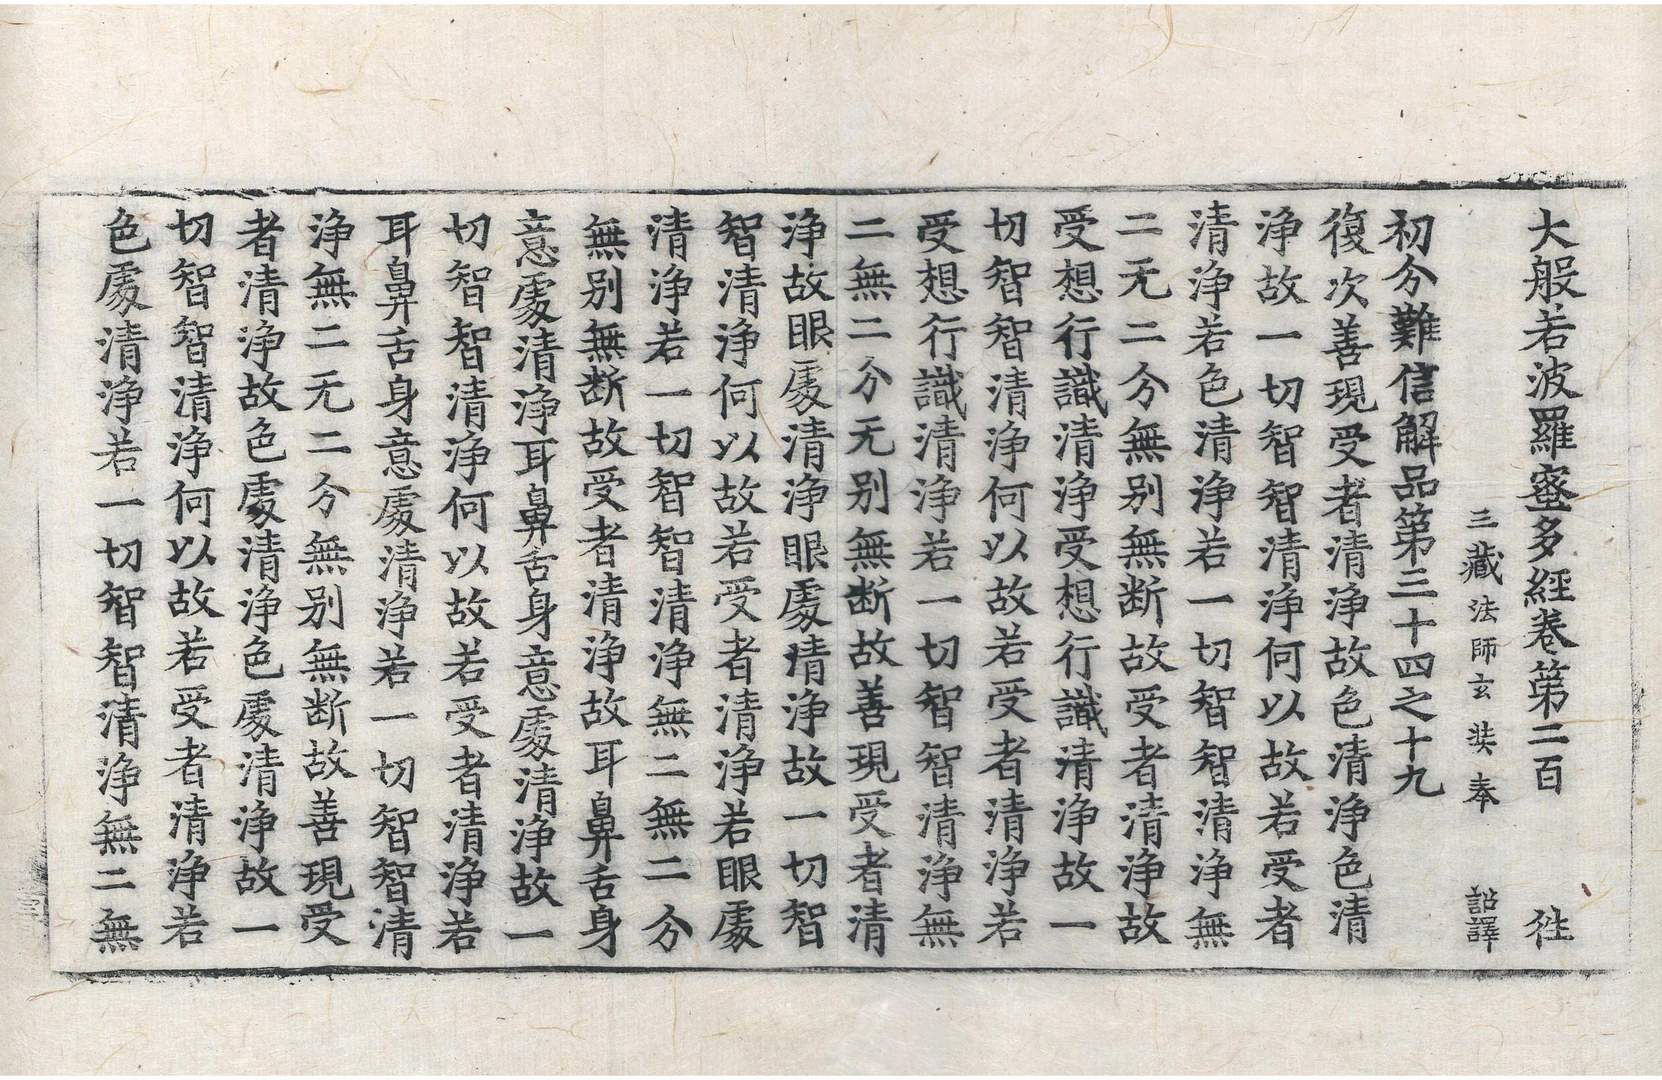 大般若波羅蜜多經卷第二百 徃
三藏法師玄奘奉 詔譯
初分難信解品第三十四之十九
復次善現受者清淨故色清淨色清
淨故一切智智清淨何以故若受者
清淨若色清淨若一切智智清淨無
二无二分無別無断故受者清淨故
受想行識清淨受想行識清淨故一
切智智清淨何以故若受者清淨若
受想行識清淨若一切智智清淨無
二無二分无別無断故善現受者清
淨故眼處清淨眼處清淨故一切智
智清淨何以故若受者清淨若眼處
清淨若一切智智清淨無二無二分
無別無断故受者清淨故耳鼻舌身
意處清淨耳鼻舌身意處清淨故一
切智智清淨何以故若受者清淨若
耳鼻舌身意處清淨若一切智智清
淨無二无二分無別無断故善現受
者清淨故色處清淨色處清淨故一
切智智清淨何以故若受者清淨若
色處清淨若一切智智清淨無二無